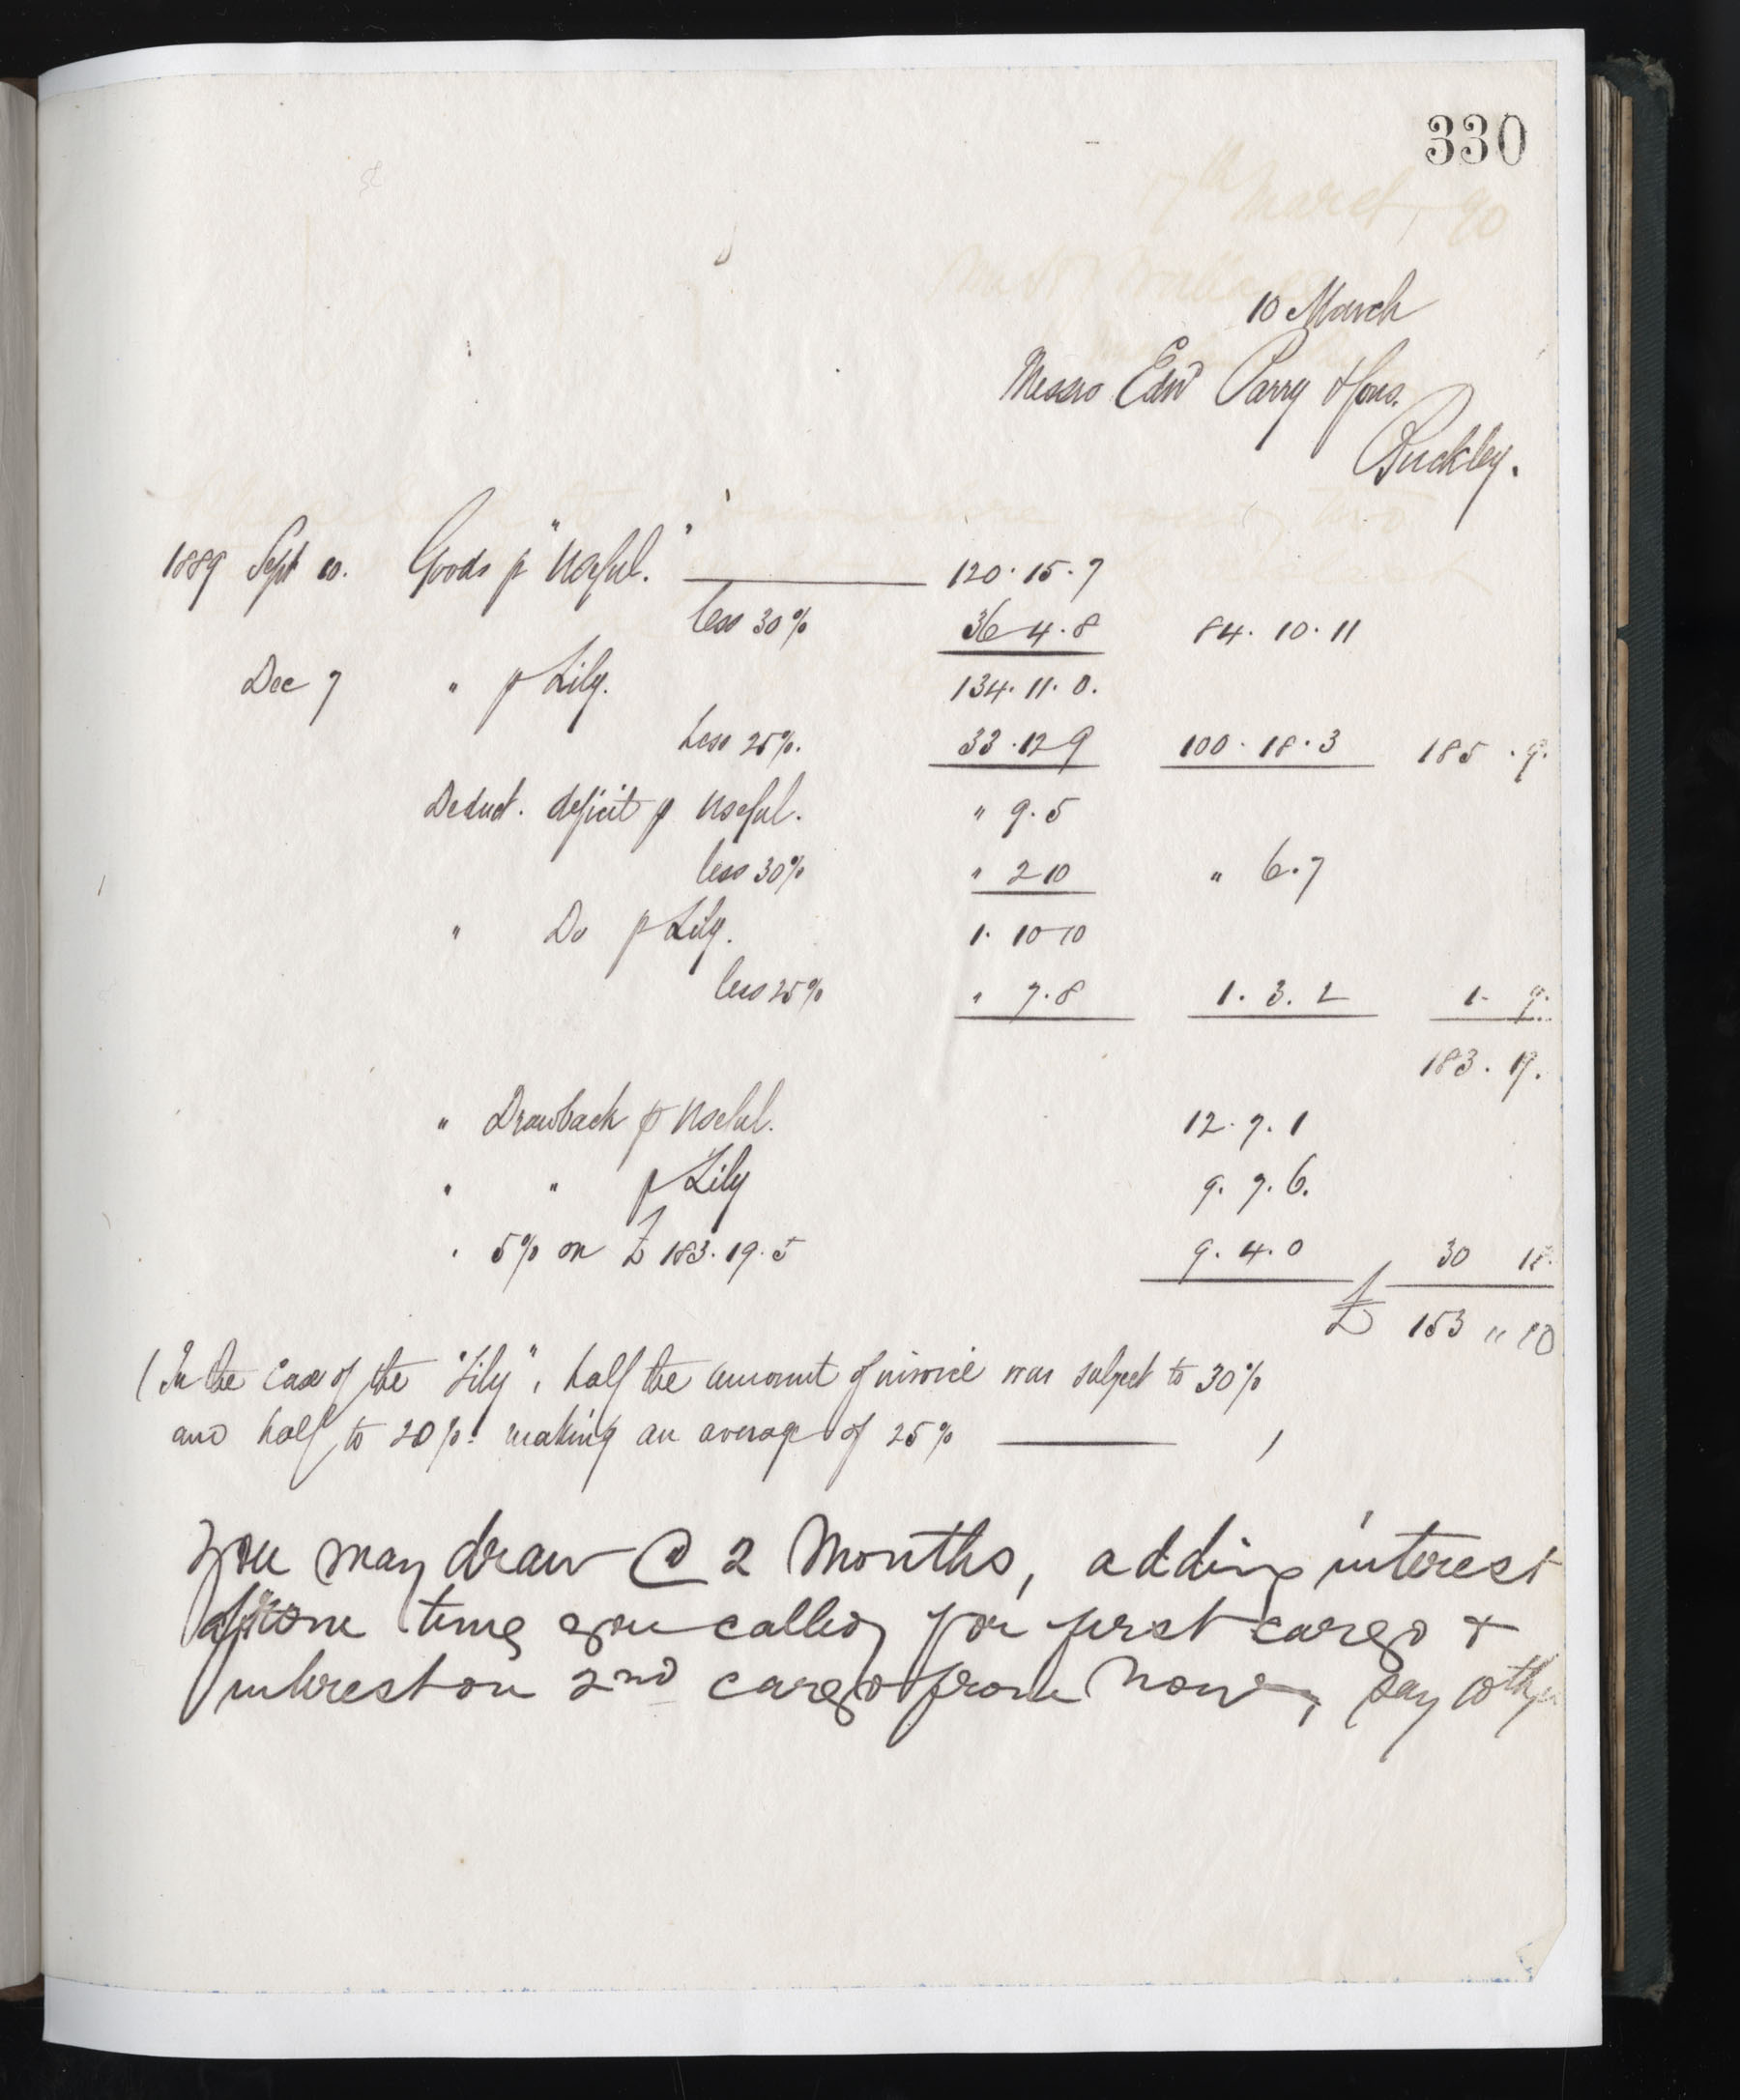 330
10 March
Messrs Edwd Parry & Sons.
Buckley.
1889 Sept 10. Goods p "Useful." 120. 15. 7
less 30% 36 4. 8 84. 10. 11
Dec 7 " p Lily. 134. 11. 0.
Less 25%. 33. 12 9 100. 18. 3 185 . 9.
Deduct. deficit p Useful. " 9. 5
less 30% " 2 10 " 6. 7
" Do p Lily. 1. 10 10
less 25% " 7. 8 1. 3. 2 1. 9.
183. 19.
" Drawback p Useful. 12. 7. 1
" " p Lily 9. 7. 6.
" 5% on £ 183. 19. 5 9. 4. 0 30 18.
£ 153 " 10
(In the case of the "Lily", half the amount of invoice was subject to 30%
and half to 20%. making an average of 25% )
You may draw @ 2 Months, adding interest
from time you called for first cargo &
interest on 2nd cargo from Now, say 10th